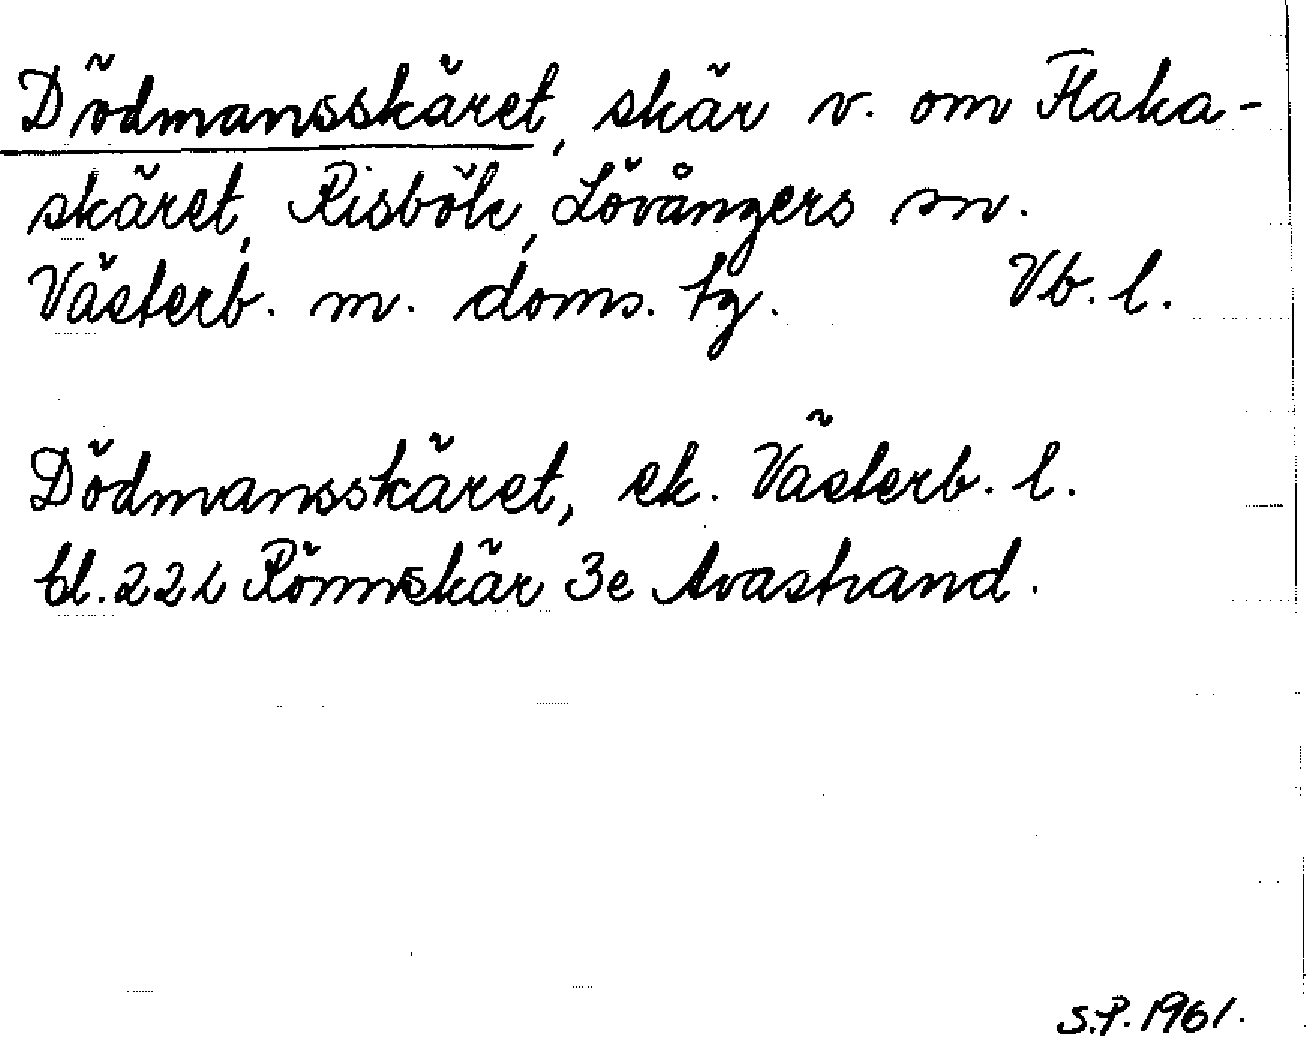 Dödmansskäret, skär v. om Flaka-
skäret, Risbök, Lövångers sn.
Västerb. m. doms. tg. Vb. l.
Dödmansskäret, ek. Västerb. l.
bl. 22 i Rönnskär 3e Avastrand.
S.P. 1961.